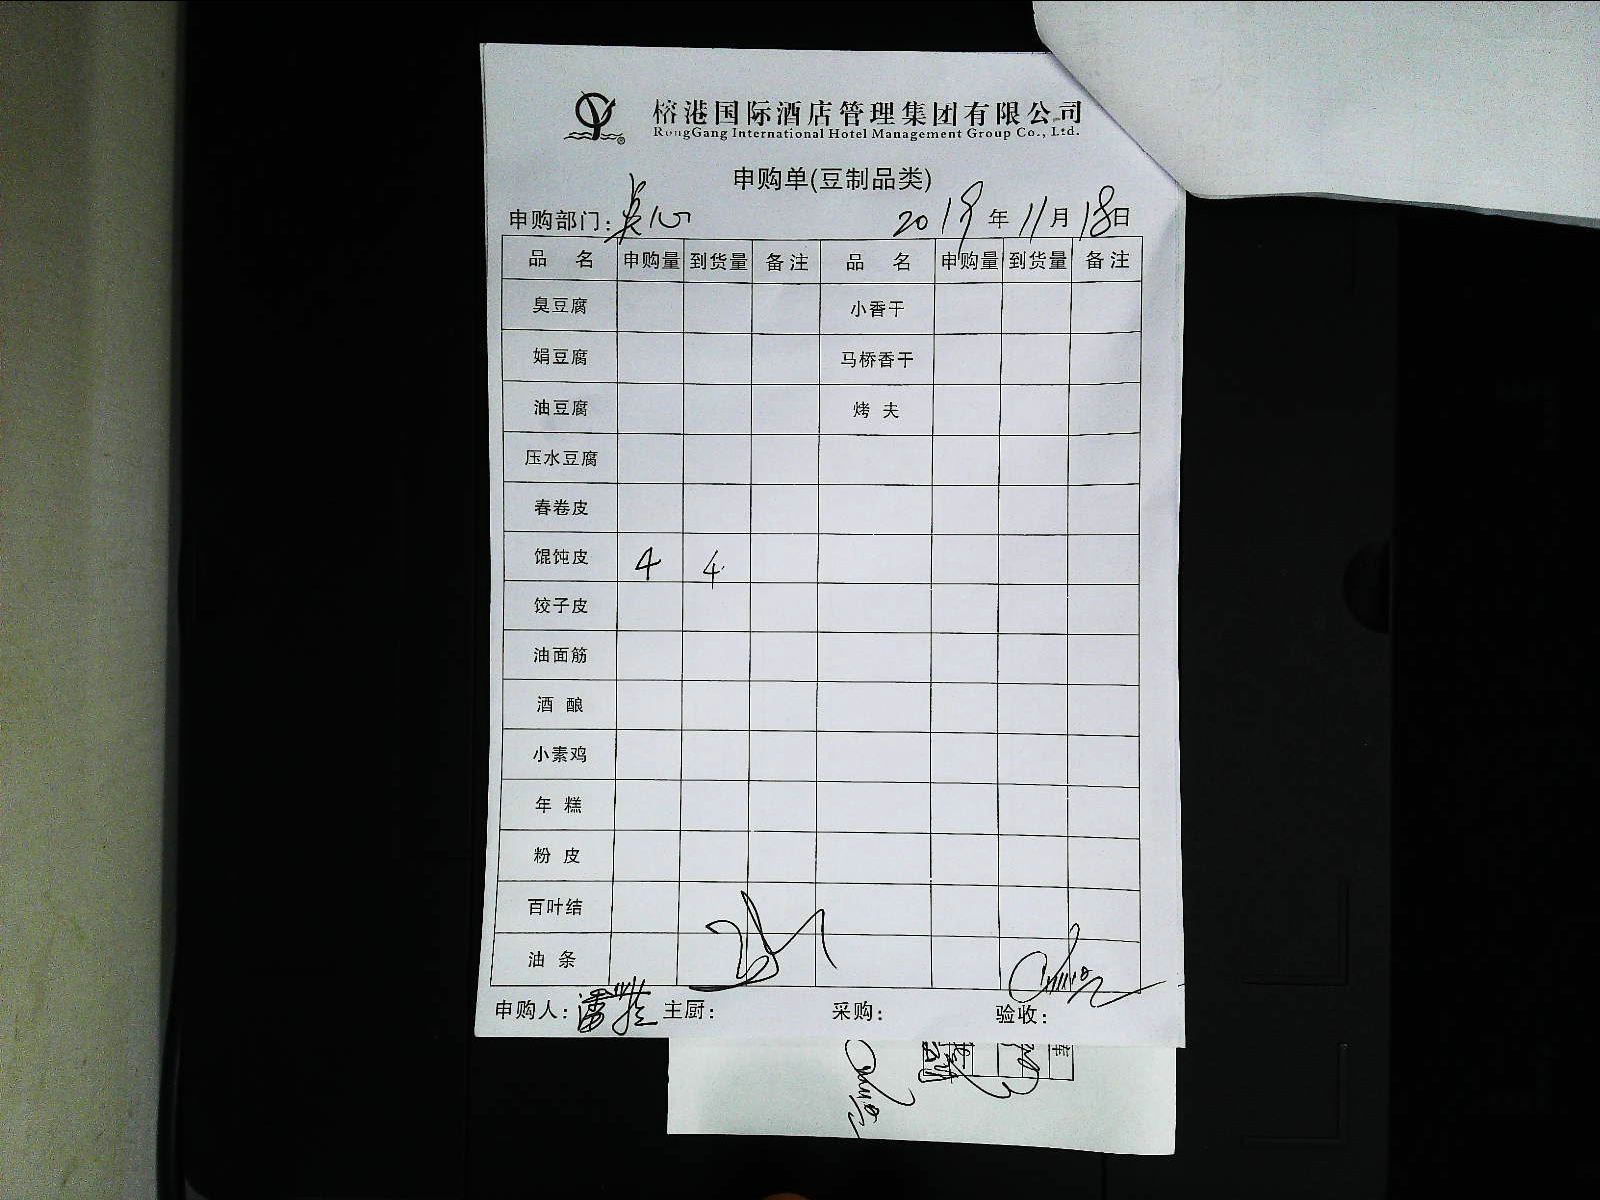 榕港国际酒店管理集团有限公司
RongGang International Hotel Management Group Co., Ltd.
申购单(豆制品类)
申购部门: 2019年11月18日
品名 申购量 到货量 备注 品名 申购量 到货量 备注
臭豆腐 小香干
娟豆腐 马桥香干
油豆腐 烤夫
压水豆腐
春卷皮
馄饨皮 4 4
饺子皮
油面筋
酒酿
小素鸡
年糕
粉皮
百叶结
油条
申购人: 主厨: 采购: 验收: